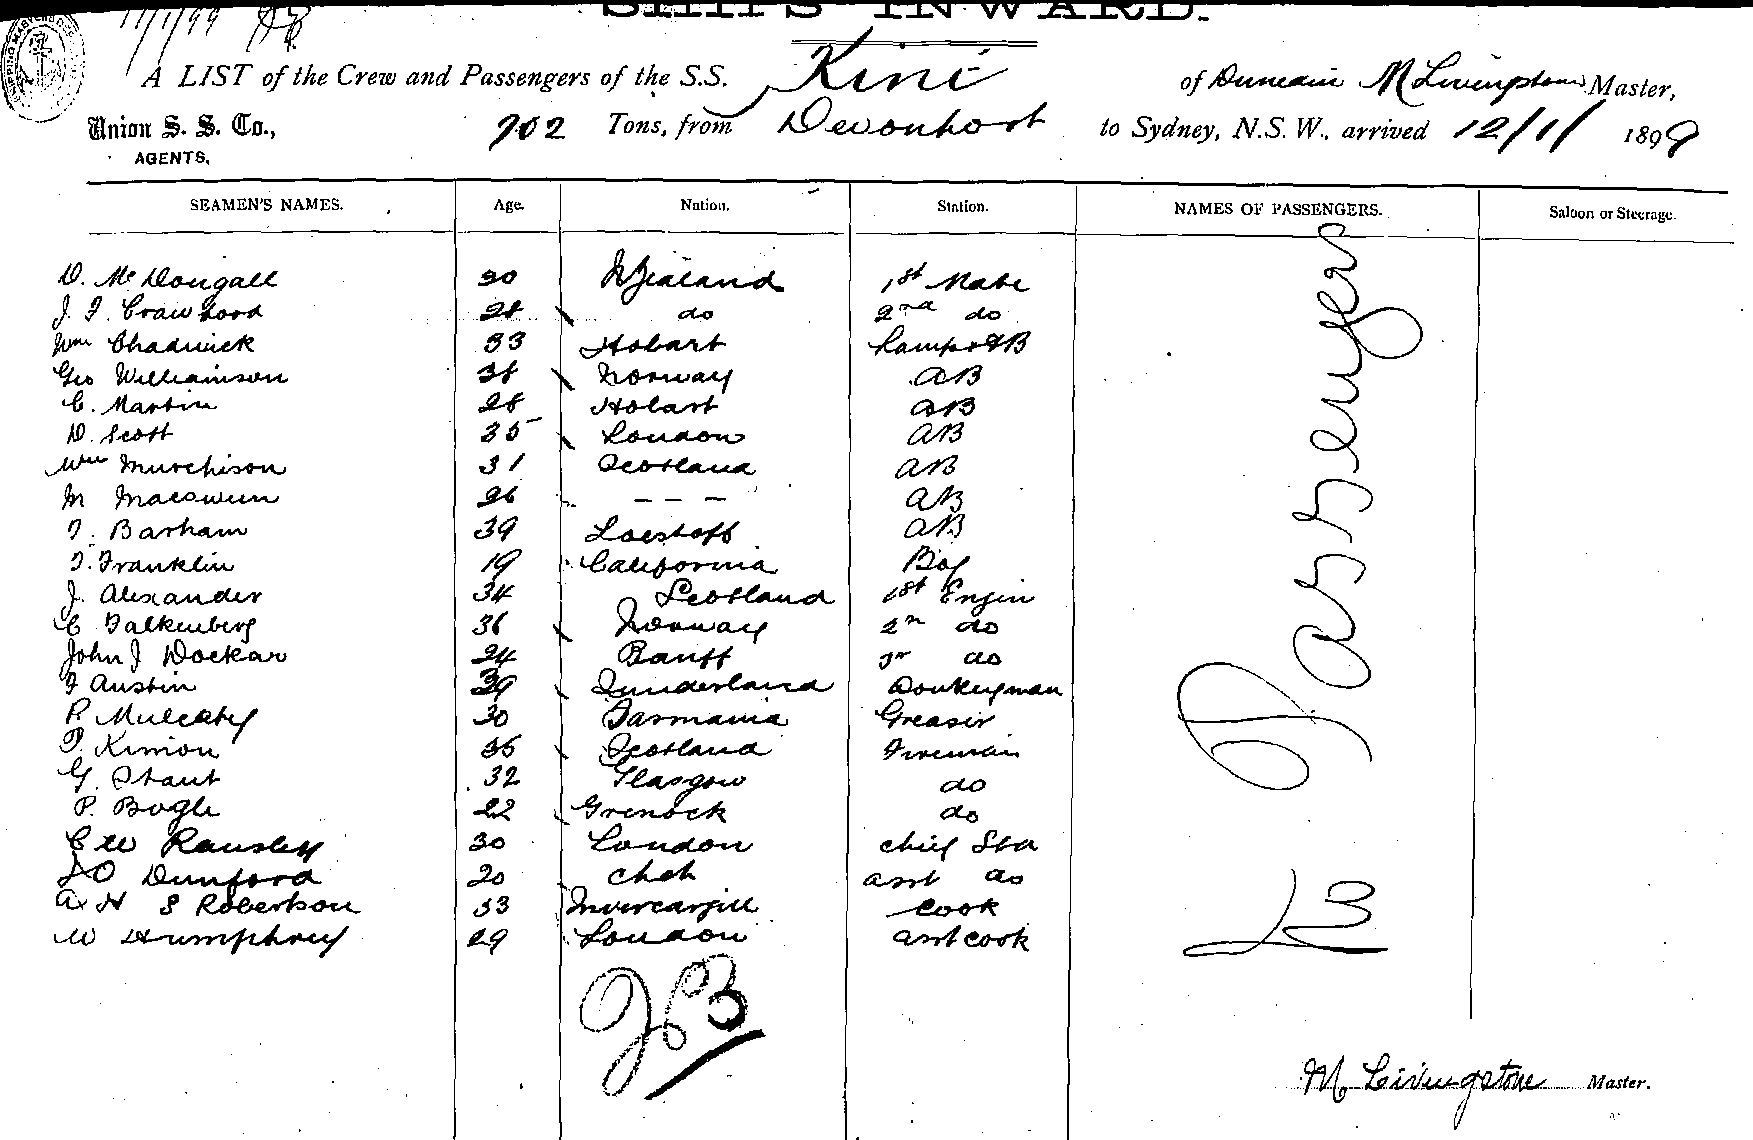 11/1/99
SHIPS INWARD.
A LIST of the Crew and Passengers of the S.S. Kini of Dunedin M Livingstone Master,
Union S. S. Co., AGENTS, 702 Tons, from Devonport to Sydney, N.S.W., arrived 12/1/ 1899
SEAMEN'S NAMES. Age. Nation. Station. NAMES OF PASSENGERS. Saloon or Steerage.
D. McDougall 30 NZealand 1st Mate
J. F. Crawford 28 do 2nd do
Wm Chadwick 33 Hobart Lamps & AB
Geo Williamson 38 Norway AB
C. Martin 28 Hobart AB
D. Scott 35 London AB
Wm Murchison 31 Scotland AB
M 26 - - - AB
T. Barham 39 Loestoff AB
T. Franklin 19 California Boy
J. Alexander 34 Scotland 1st Engin
C Falkenberg 36 Norway 2n do
John J Dockar 24 Banff 3r do
F Austin 39 Sunderland Donkeyman
P. Mulcahy 30 Tasmania Greaser
P. Kinion 35 Scotland Fireman
G. Staut 32 Glasgow do
P. Bogle 22 Grenock do
C W Ransley 30 London chief Std
Dunford 20 Chch asst do
A H S Robertson 33 Invercargill Cook
W Humphrey 29 London asst cook
No Passengers
M. Livingstone Master.